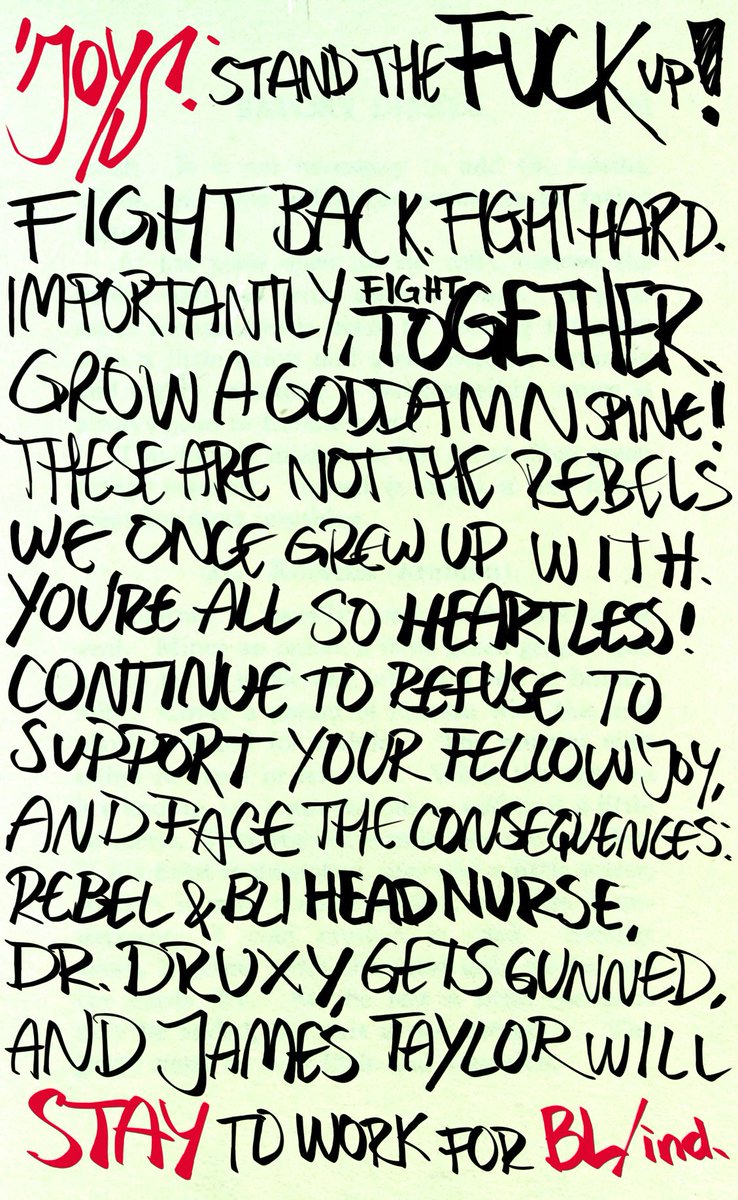 'JOYS! STAND THE FUCK UP!
FIGHT BACK. FIGHT HARD.
IMPORTANTLY, FIGHT TOGETHER.
GROW A GODDAMN SPINE!
THESE ARE NOT THE REBELS
WE ONCE GREW UP WITH.
YOU'RE ALL SO HEARTLESS!
CONTINUE TO REFUSE TO
SUPPORT YOUR FELLOW 'JOY,
AND FACE THE CONSEQUENCES:
REBEL & BLI HEAD NURSE,
DR. DRUXY, GETS GUNNED,
AND JAMES TAYLOR WILL
STAY TO WORK FOR BL/ind.